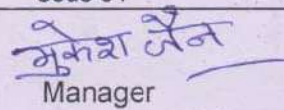 मुकेश जैन
Manager